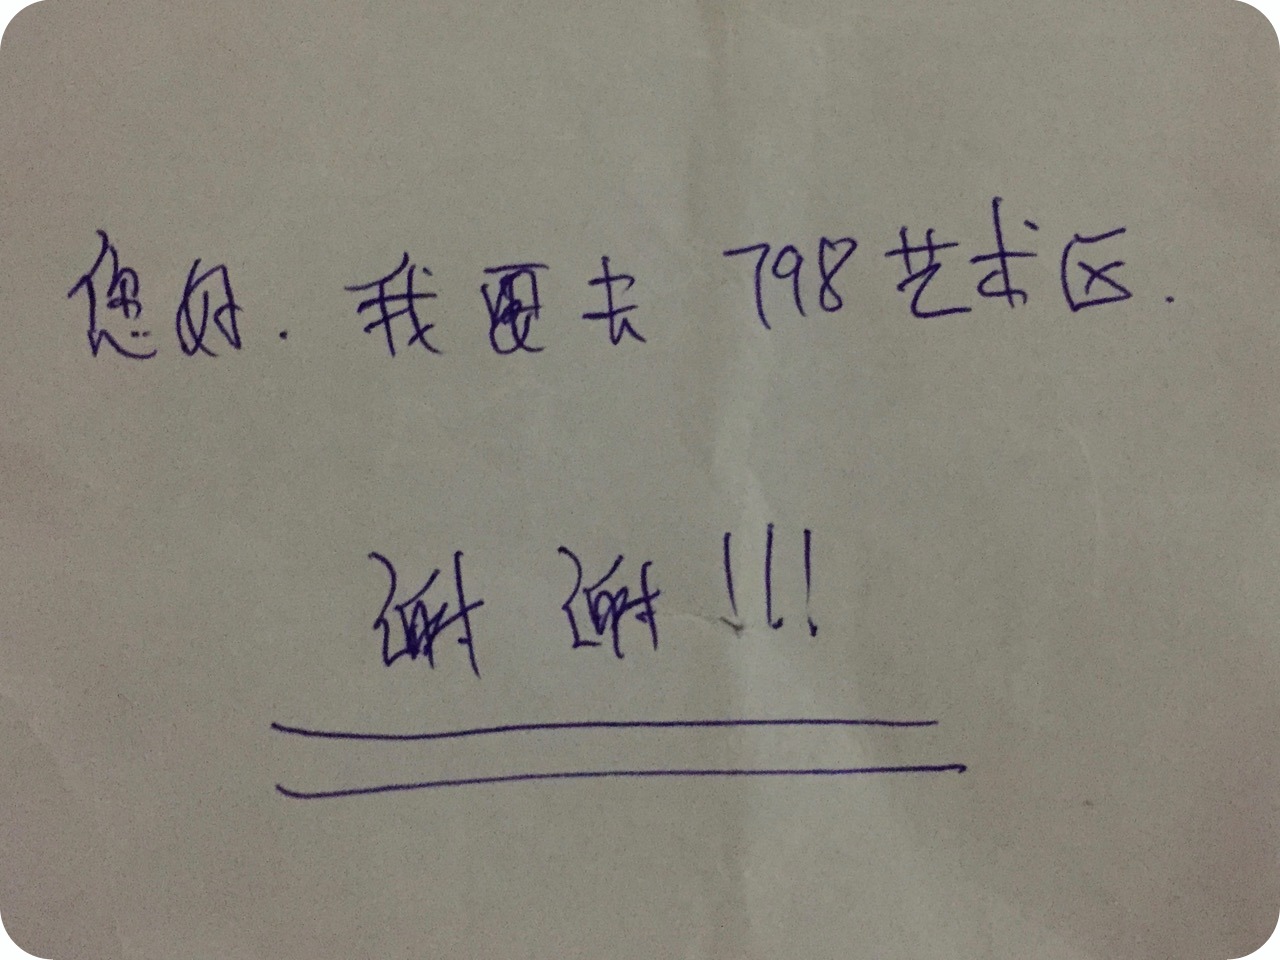 您好.我要去 798艺术区.
谢谢!!!